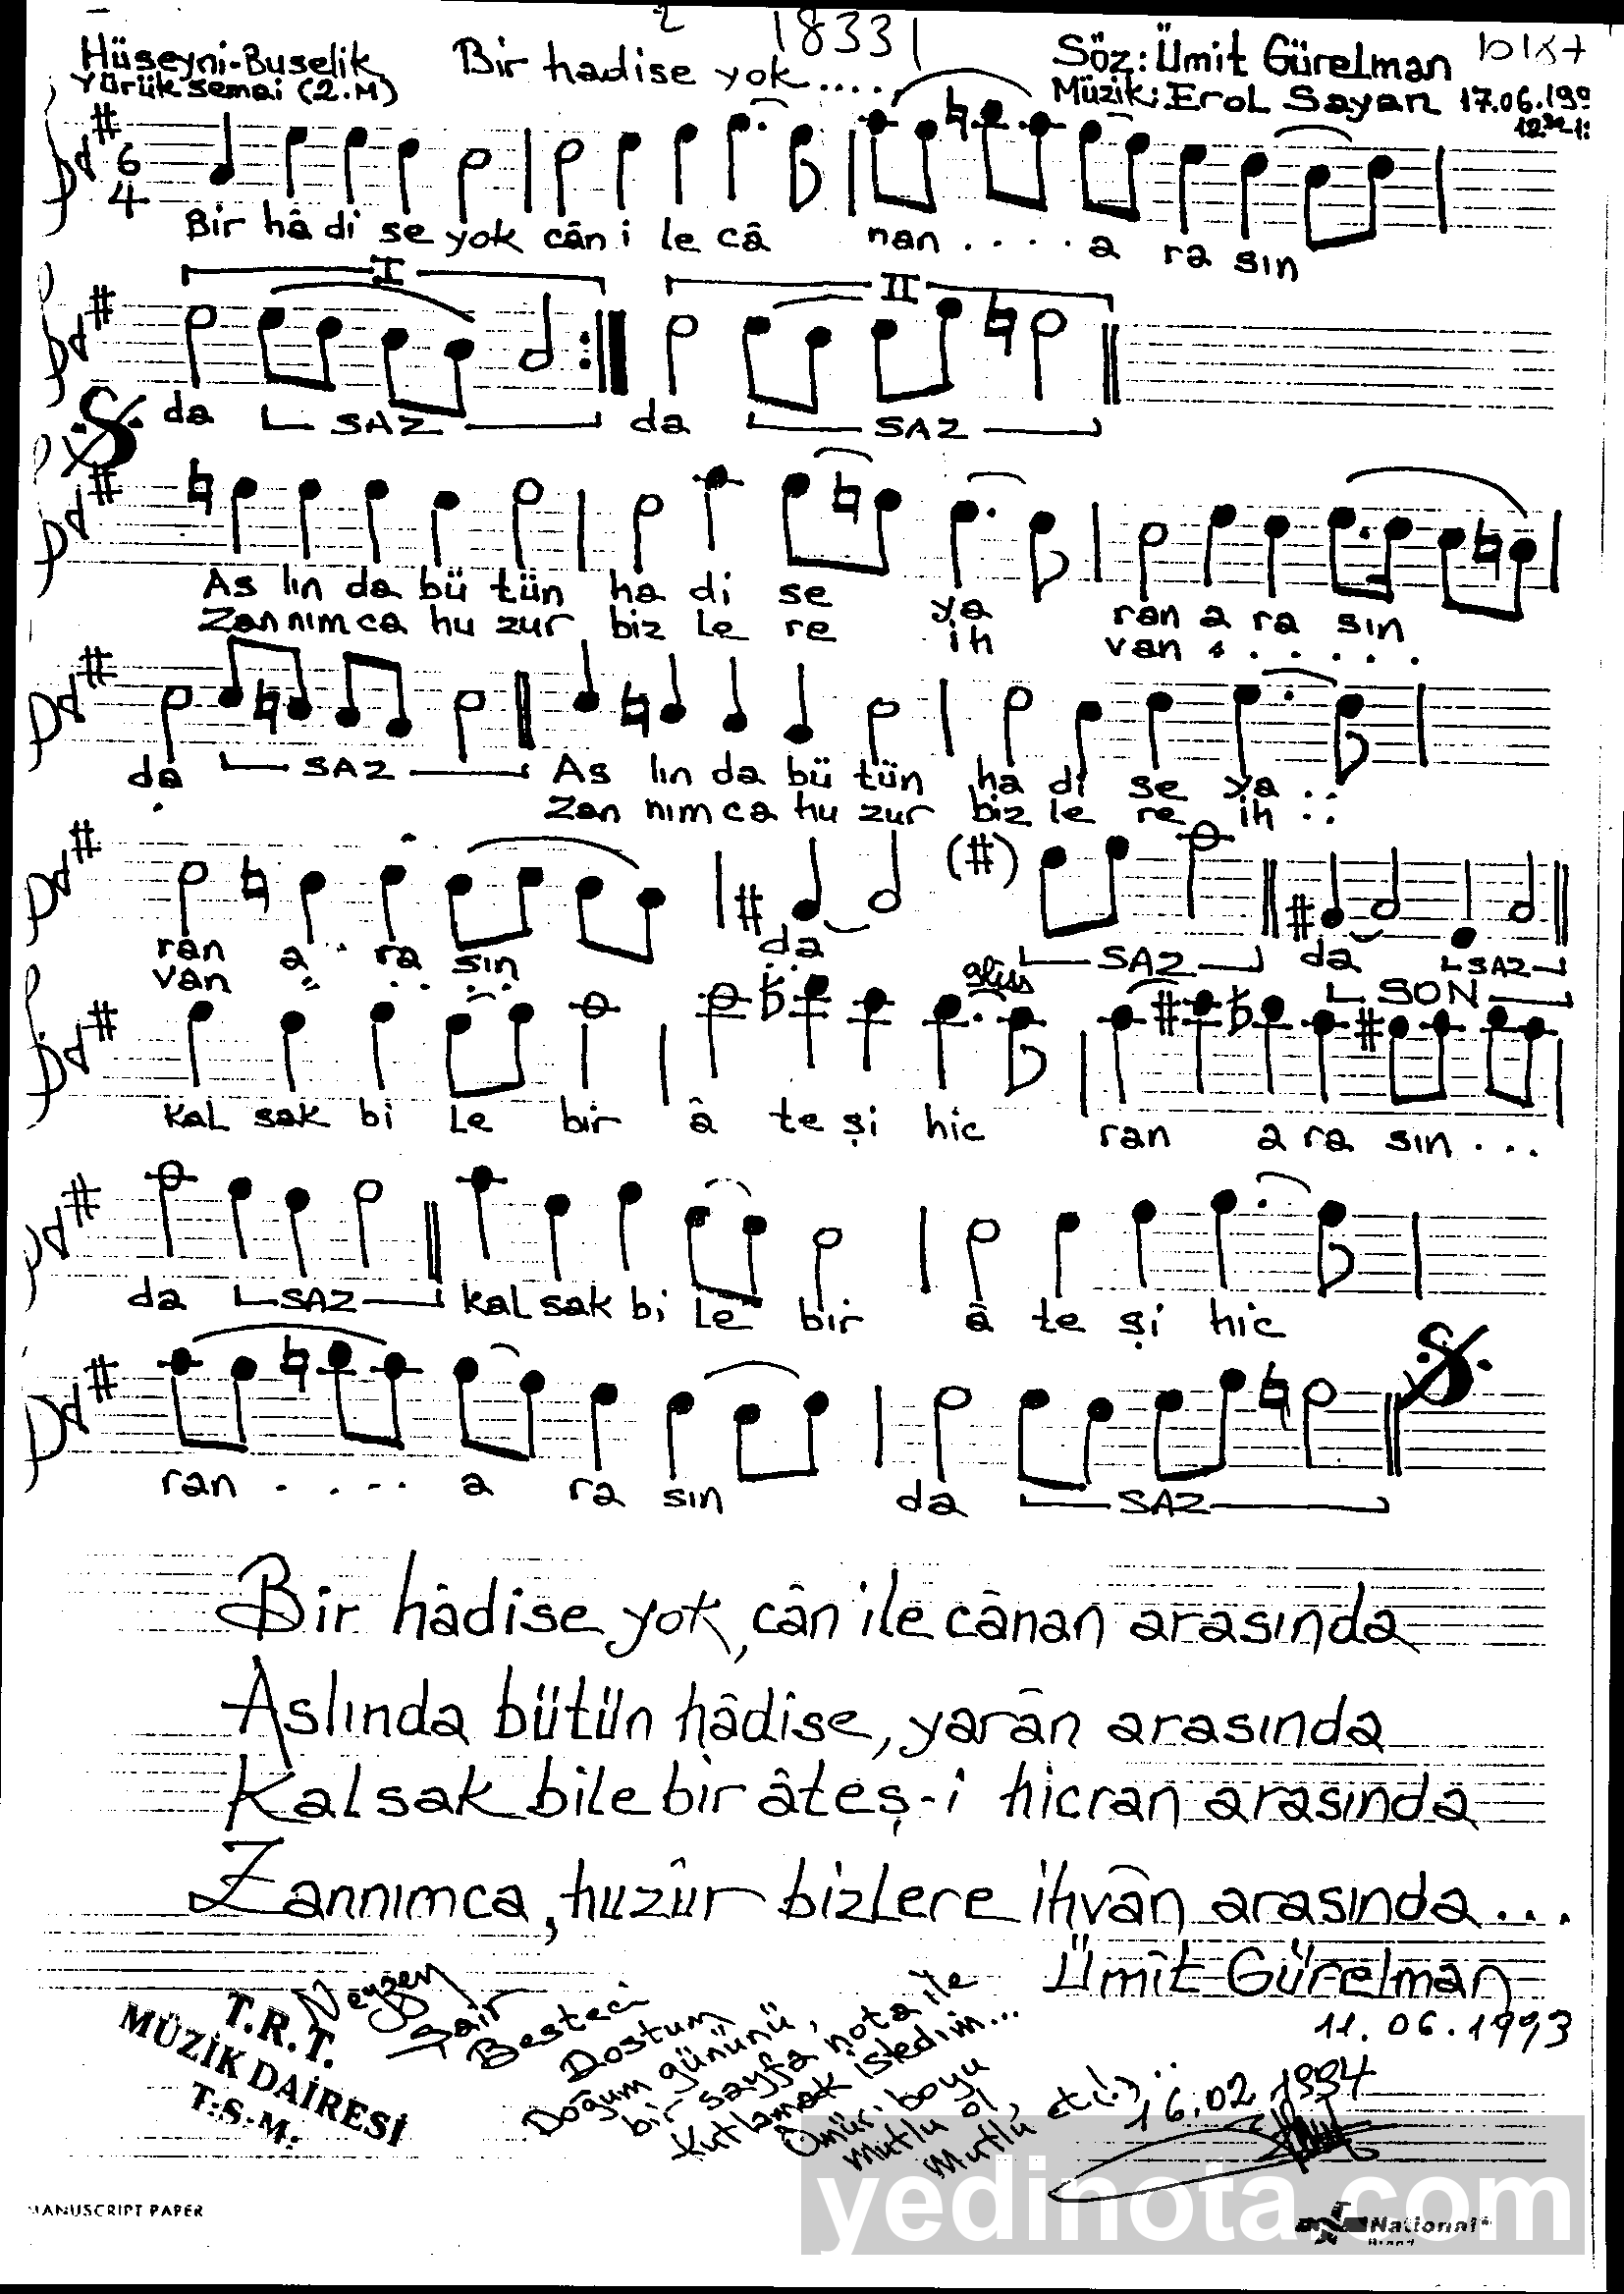 18331
Hüseyni-Buselik
Yürük semai (2.M)
Bir hadise yok.....
Söz: Ümit Gürelman
Müzik: Erol Sayan 17.06.199
6
4
Bir hâ di se yok cân i le câ nan . . . . a ra sın
I II
da SAZ da SAZ
As lın da bü tün ha di se ya ran a ra sın
Zan nım ca hu zur biz le re ih van . . . . . .
da SAZ As lın da bü tün ha di se ya . .
Zan nım ca hu zur biz le re ih . .
(#)
ran a . . ra sın da SAZ da SAZ
van . . . . SON
gliss
Kal sak bi le bir â te şi hic ran a ra sın . . .
da SAZ kal sak bi le bir â te şi hic
ran . . . . a ra sın da SAZ
Bir hâdise yok, cân ile cânan arasında
Aslında bütün hâdise, yarân arasında
Kalsak bile bir âteş-i hicran arasında
Zannımca, huzûr bizlere ihvân arasında...
Ümit Gürelman
11.06.1993
T.R.T.
MÜZİK DAİRESİ
T.S.M.
Neyzen
Şair
Besteci
Dostum
Doğum gününü,
bir sayfa nota ile
Kutlamak istedim...
Ömür boyu
mutlu ol,
mutlu et(!)..
16.02.1994
yedinota.com
MANUSCRIPT PAPER
National
Brand